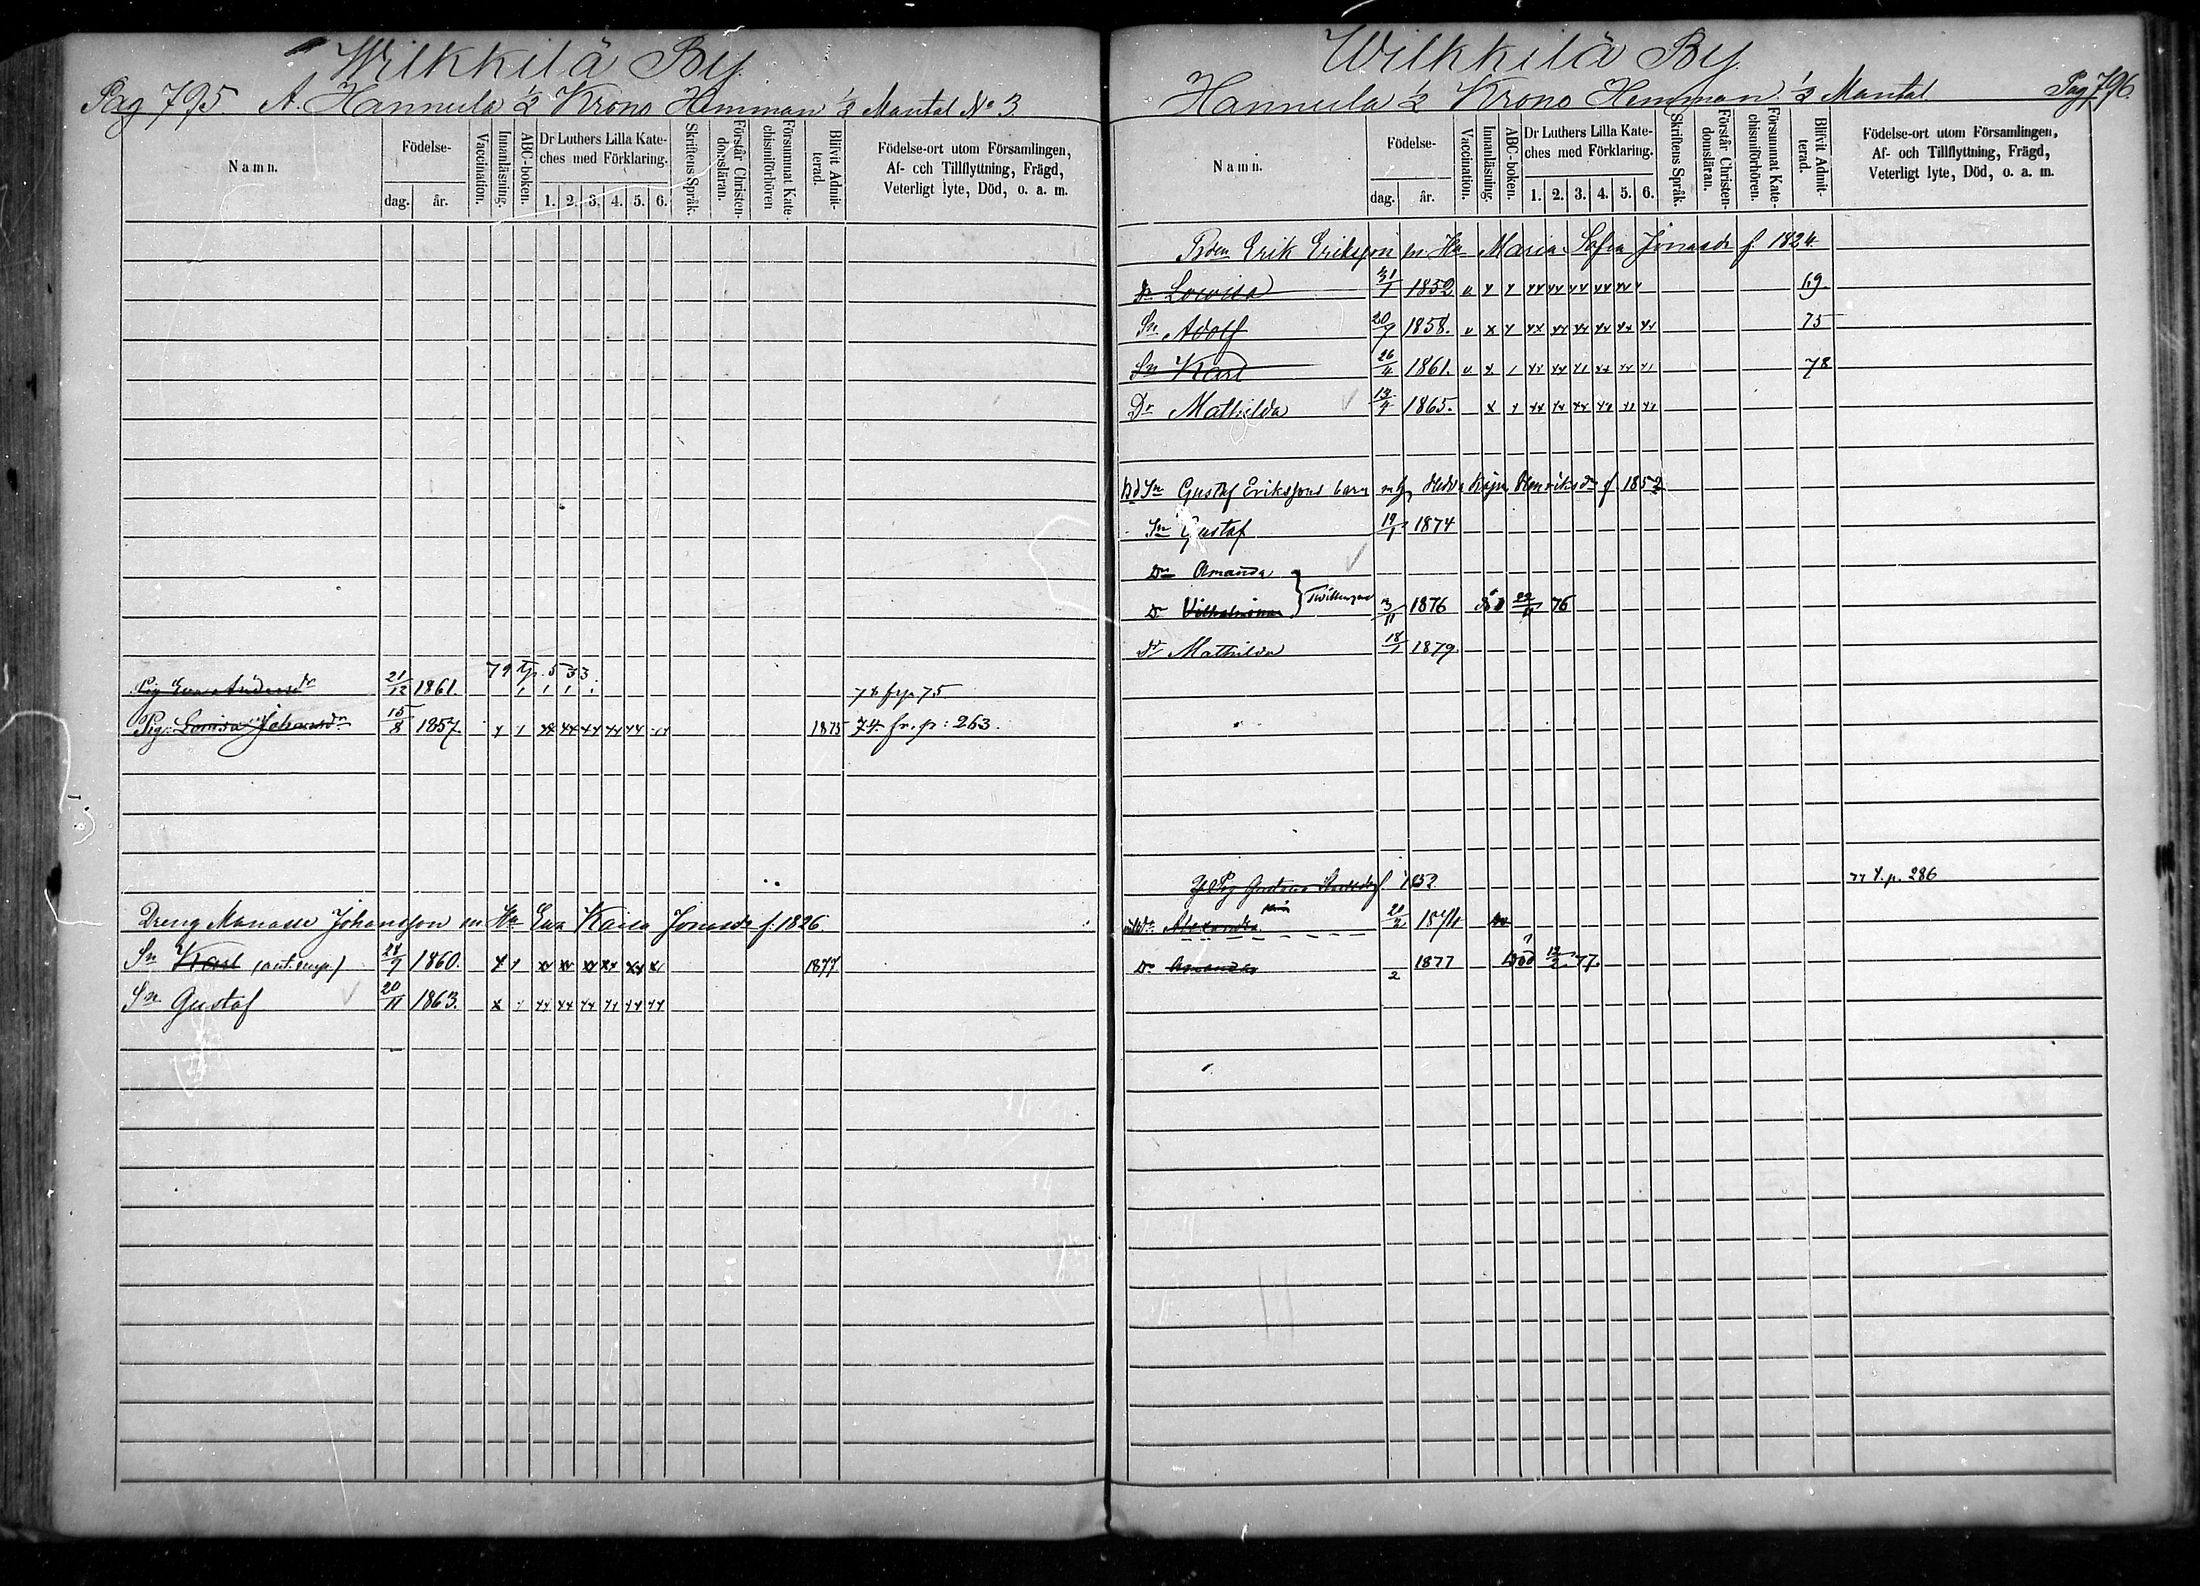 Wilkkilä By
Pag 795. A. Hannula 1/2 Krono Hemman 1/2 Mantal No 3
Namn.
Födelse-
dag.
år.
Vaccination.
Innanläsning.
ABC-boken.
Dr Luthers Lilla Kate-
ches med Förklaring.
1. 2. 3. 4. 5. 6.
Skriftens Språk.
Förstår Christen-
domsläran.
Försummat Kate-
chismiförhören
Blifvit Admit-
terad.
Födelse-ort utom Församlingen,
Af- och Tillflyttning, Frägd,
Veterligt lyte, Död, o. a. m.
79 tp. 533.
Pig Eva Andersdr 21/12 1861. 78 fr p 75
Pig: Lovisa Johansdr 15/8 1857. x 1 xx xx xx xx xx 1875 74. fr. p: 263.
Dreng Manasse Johansson m Hu Eva Kaisa Jonasdr f. 1826.
Sn Karl 28/9 1860. x x xx xx xx xx xx 1877
Sn Gustaf 20/11 1863. x xx xx xx xx xx xx
Wilkkilä By
Hannula 1/2 Krono Hemman 1/2 Mantal Pag 796.
Namn.
Födelse-
dag.
år.
Vaccination.
Innanläsning.
ABC-boken.
Dr Luthers Lilla Kate-
ches med Förklaring.
1. 2. 3. 4. 5. 6.
Skriftens Språk.
Förstår Christen-
domsläran.
Försummat Kate-
chismiförhören.
Blifvit Admit-
terad.
Födelse-ort utom Församlingen,
Af- och Tillflyttning, Frägd,
Veterligt lyte, Död, o. a. m.
Bden Erik Eriksson m Hu Maria Sofia Jonasdr f. 1824
Dr Lovisa 31/1 1852 v x x xx xx xx xx xx 69.
Sn Adolf 20/9 1858. v x x xx xx xx xx xx xx 75
Sn Karl 26/11 1861. v x 1 xx xx xx xx xx 78
Dr Mathilda 1865. x x xx xx xx
Sn Gustaf Erikssons barn m h Hedda Kajsa Henriksdr f 1852
Sn Gustaf 19/1 1874
Dr Amanda
Dr Vilhelmina } Tvillingar 3/11 1876 76
Dr Mathilda 18/1 1879.
Pig Gustava f. 1852. 77 t. p. 286
Dr Alexandra 21/2
Dr Amanda 2 1877 Död 12/2 77.